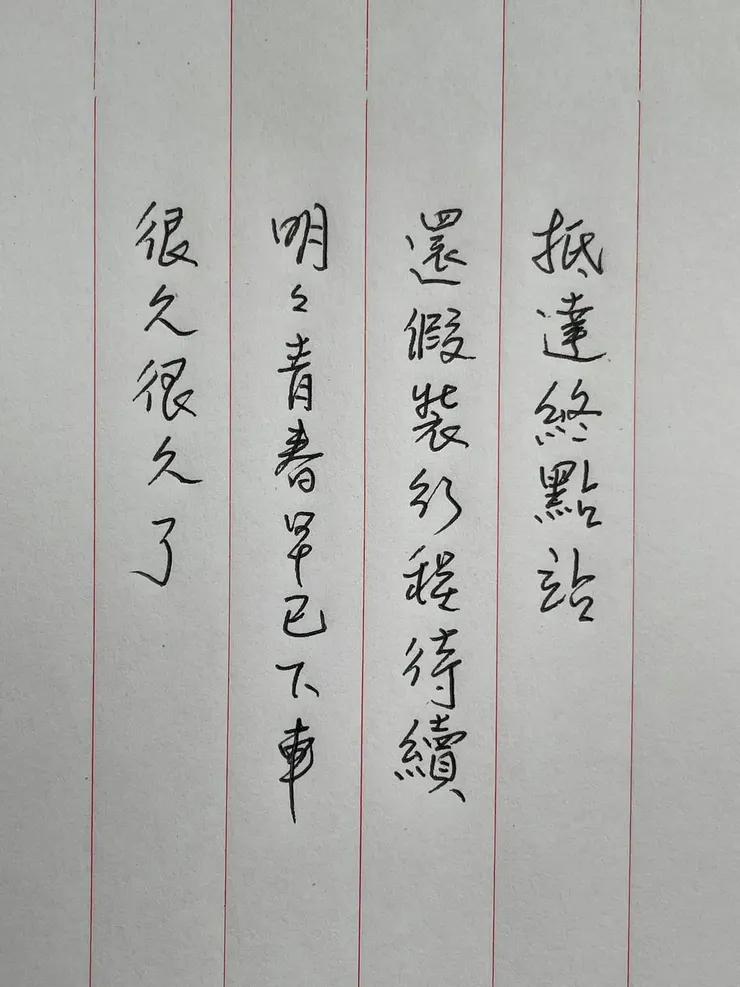 抵達終點站
還假裝行程待續
明々青春早已下車
很久很久了